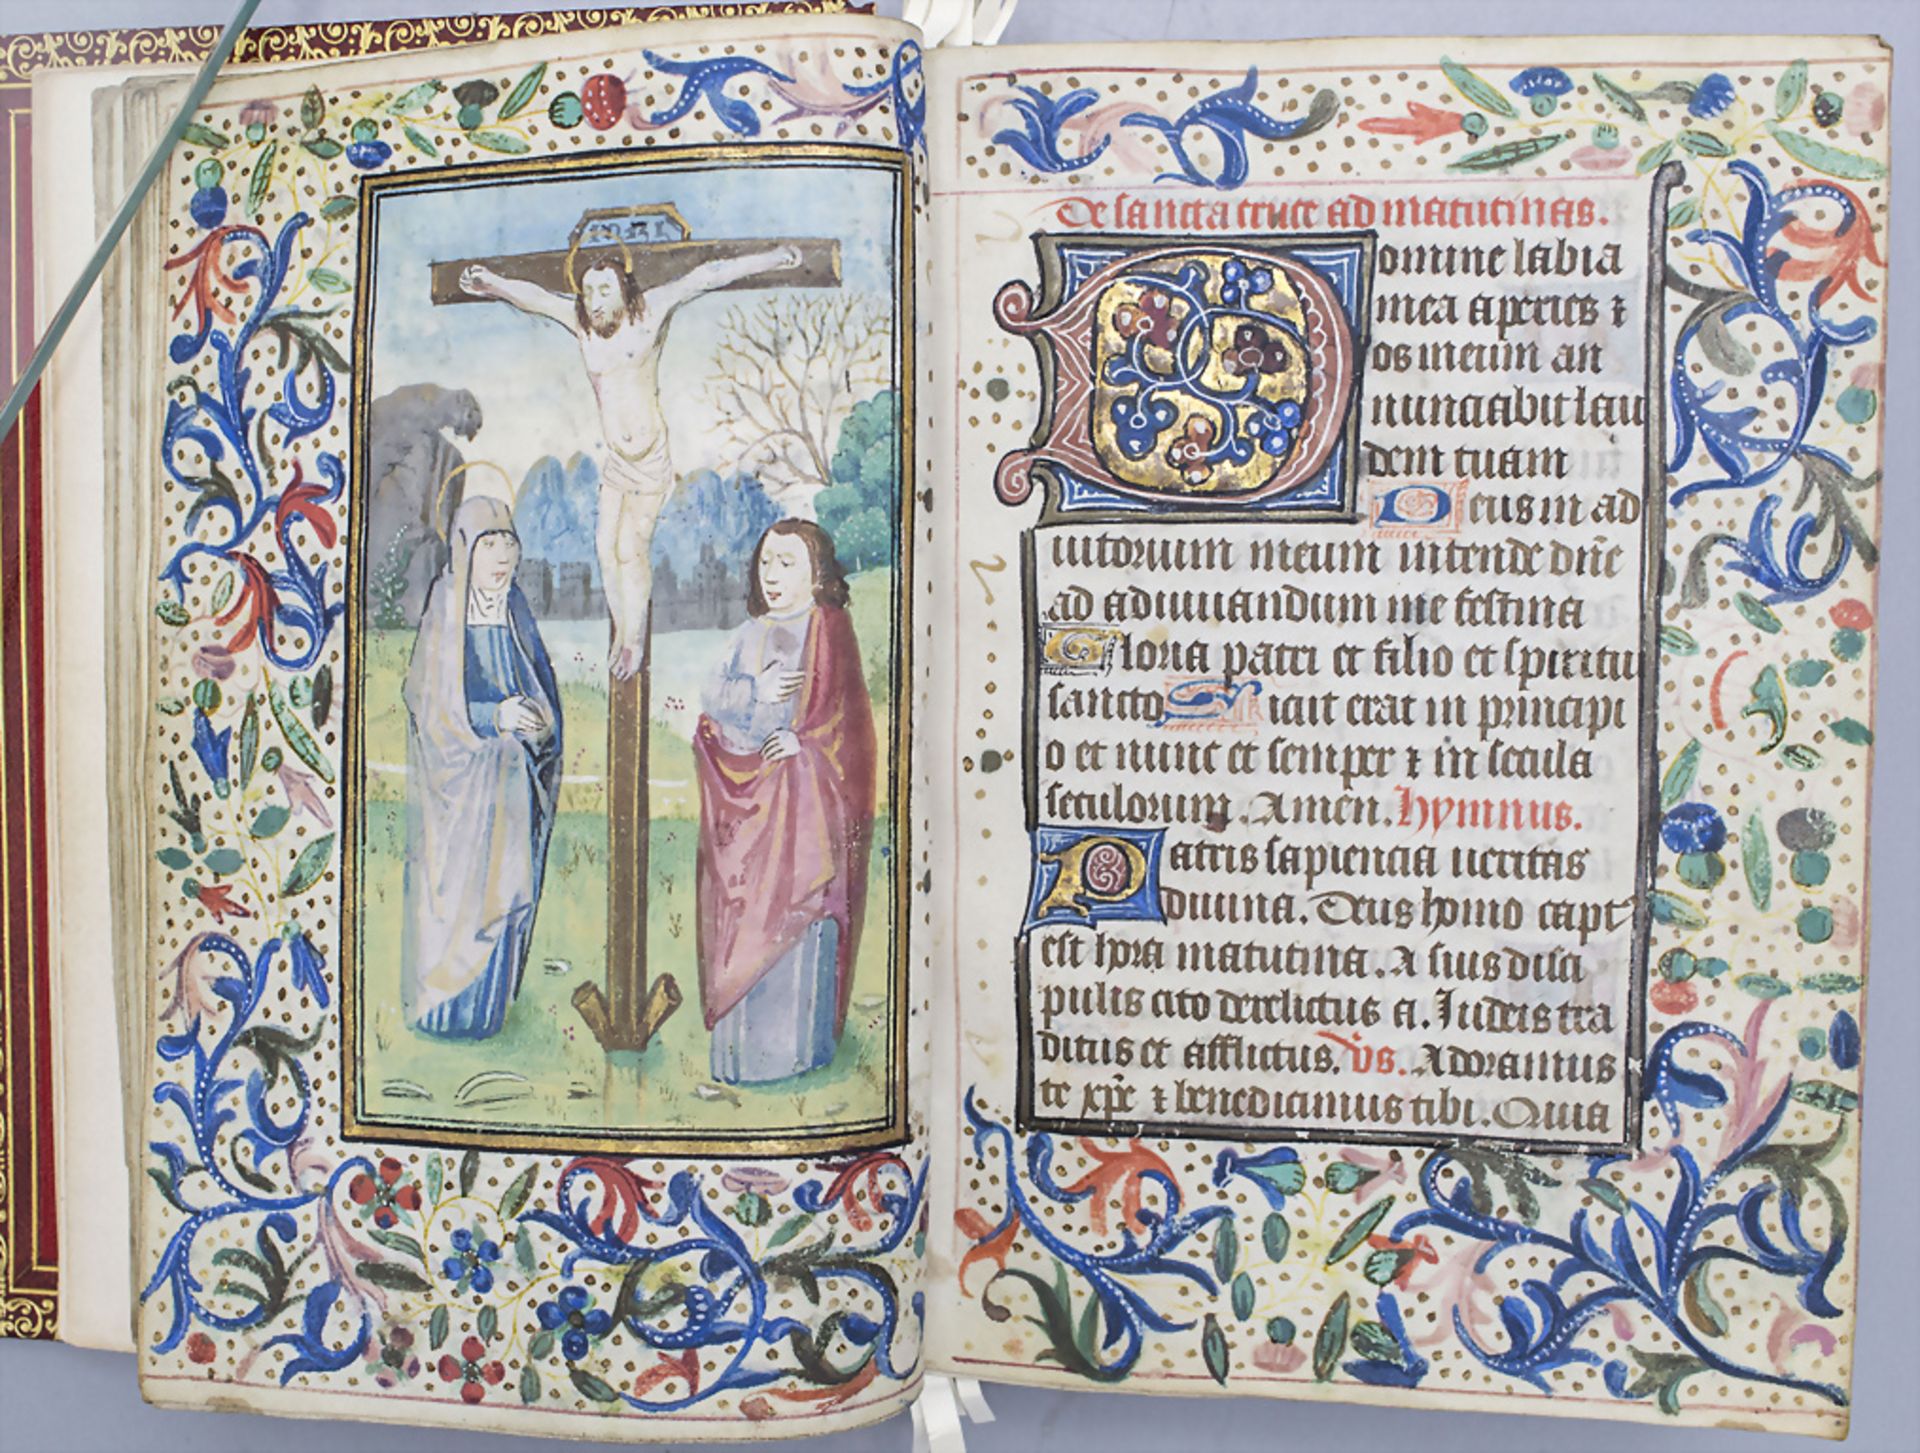 INRI
De sancta cruce ad matutinas.
Domine labia
mea aperies ⁊
os meum an
nunciabit lau
dem tuam
Deus in ad
iutorium meum intende dn̄e
ad adiuuandum me festina
Gloria patri et filio et spiritu
sancto Sicut erat in principi
o et nunc et semper ⁊ in secula
seculorum. Amen. Hymnus.
Patris sapiencia ueritas
diuina. Deus homo capt᾿
est hora matutina. A suis disci
pulis cito derelictus a. Iudeis tra
ditus et afflictus. v̄s. Adoramus
te xp̄e ⁊ benedicimus tibi. Quia